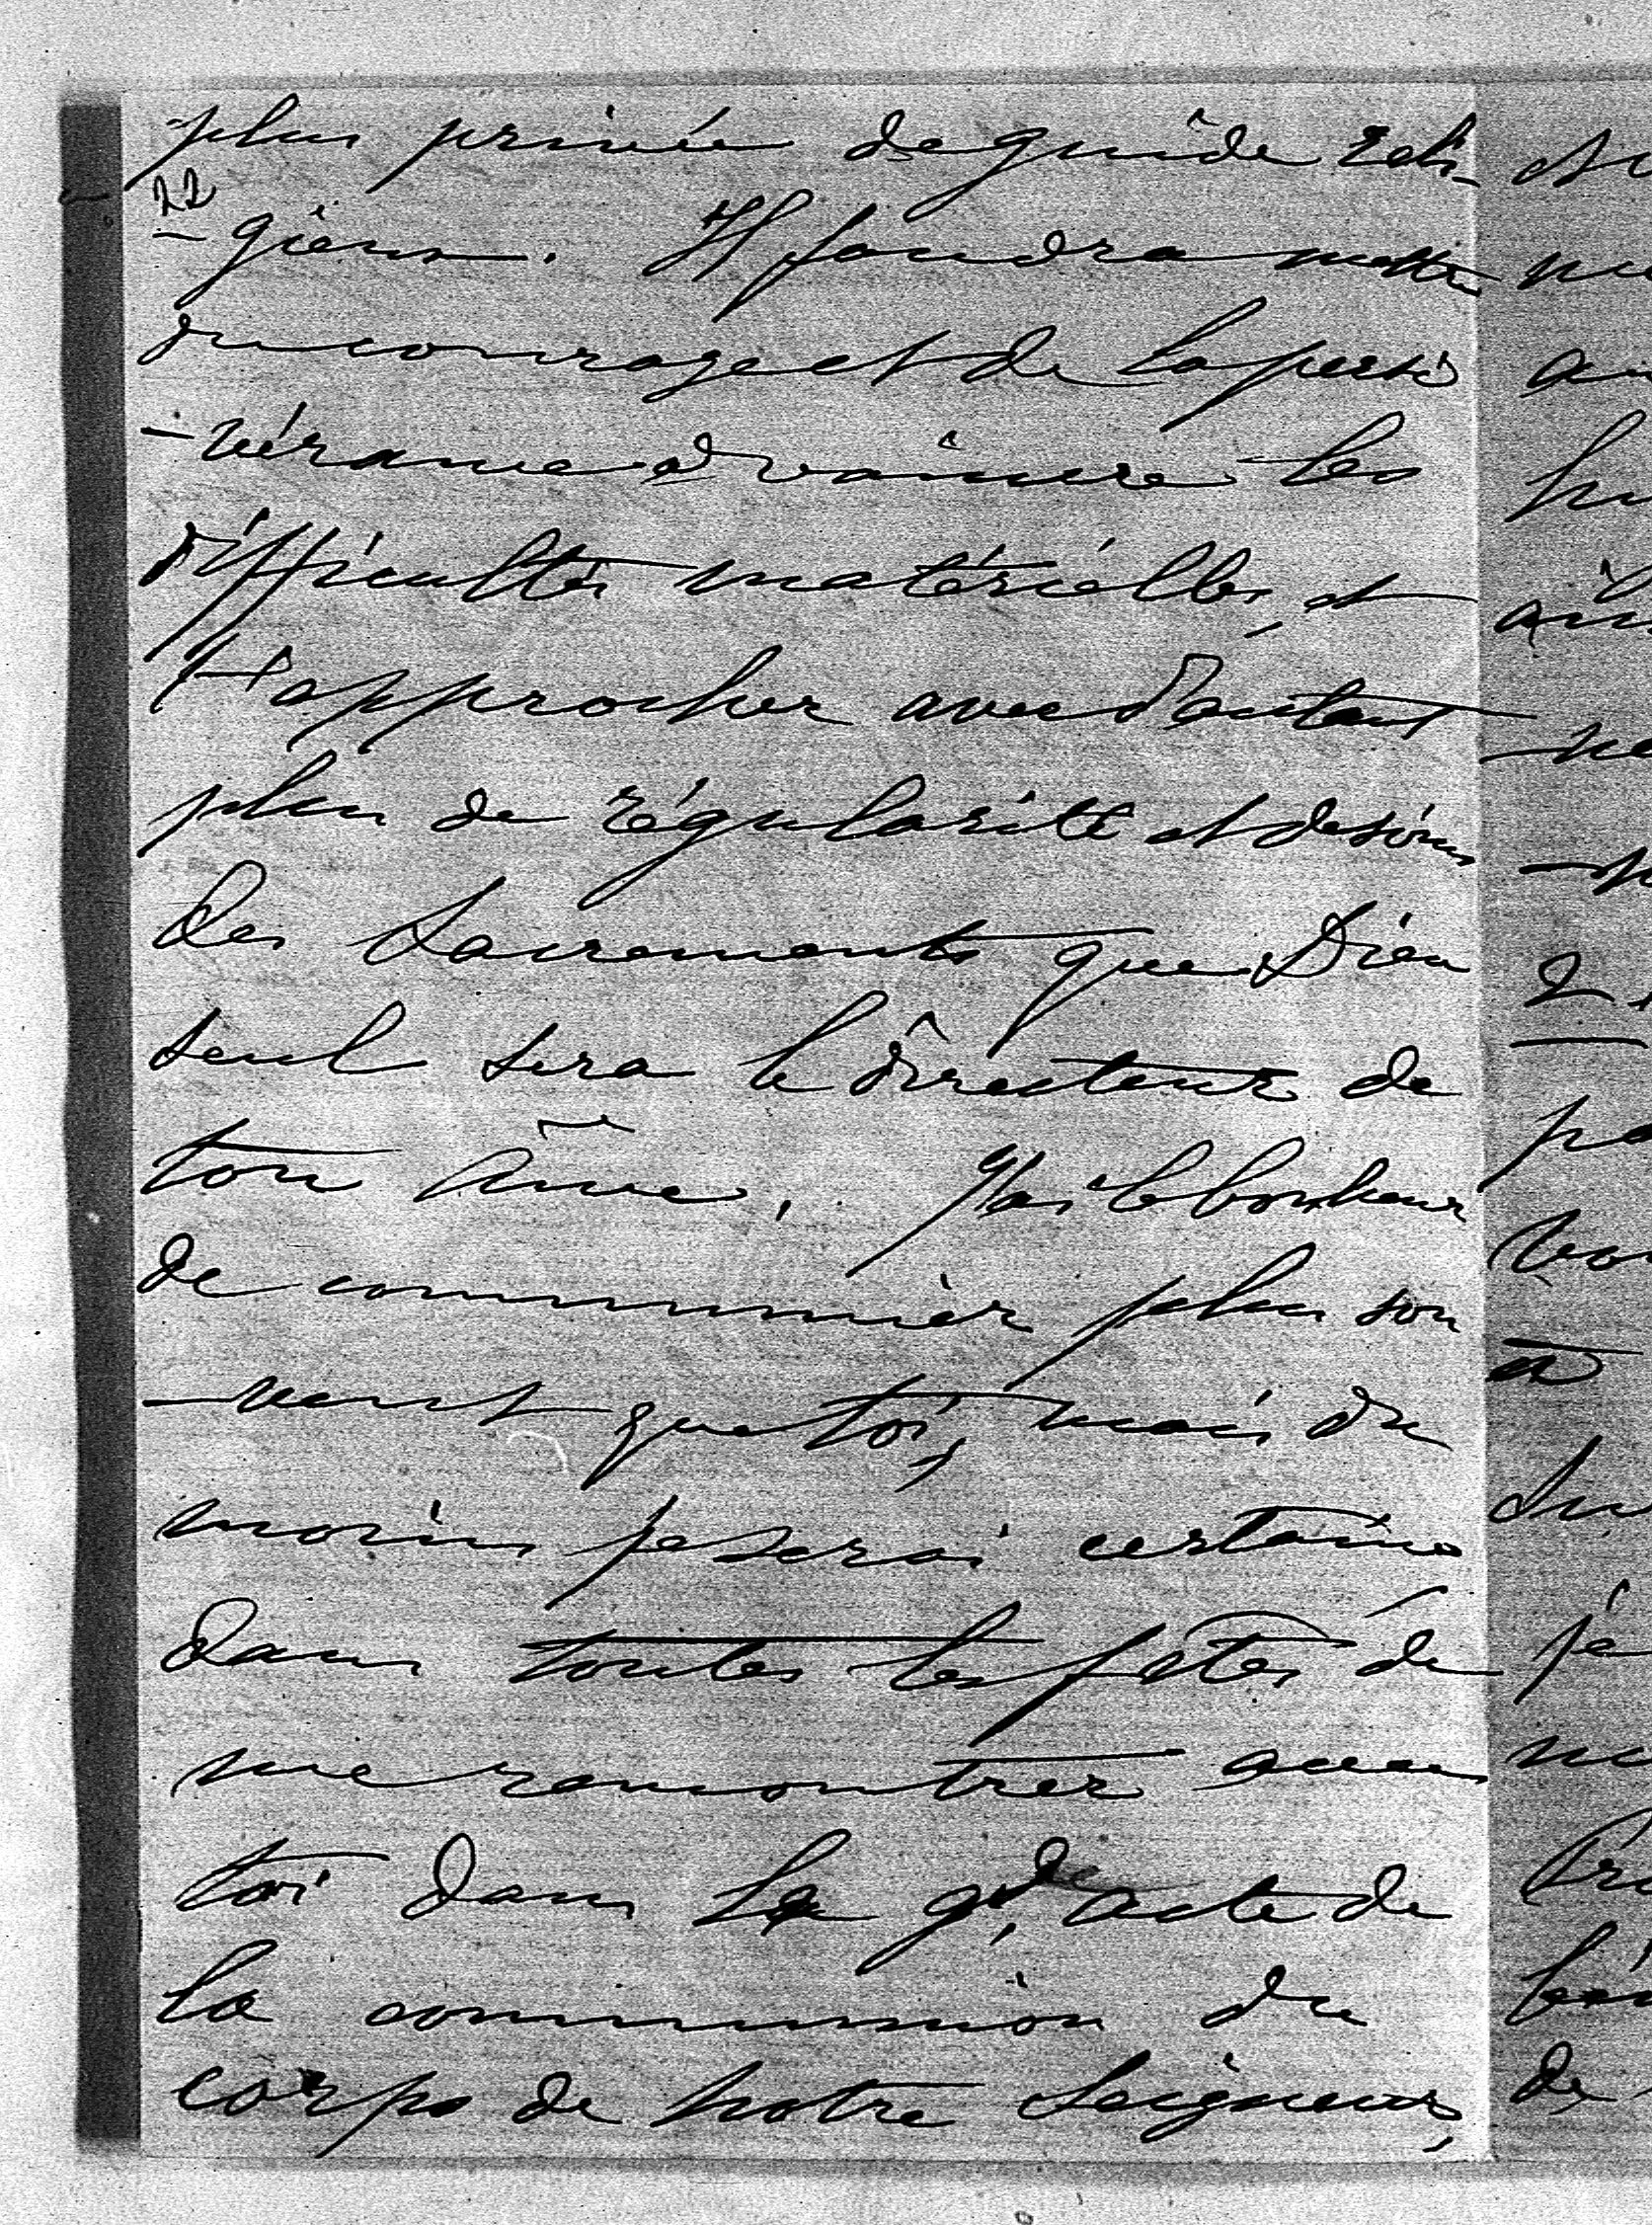 plus privée de guide reli-
22
-gieux. Il faudra mettre
du courage et de la persé
-vérance à vaincre les
difficultés matérielles, et
t'approcher avec d'autant
plus de régularité et de soin
des Sacrements que Dieu
seul sera le directeur de
ton âme. J'ai le bonheur
de communier plus sou
-vent que toi, mais du
moins je serai certaine
dans toutes les fêtes de
me rencontrer avec
toi dans le gd acte de
la communion du
corps de notre Seigneur,